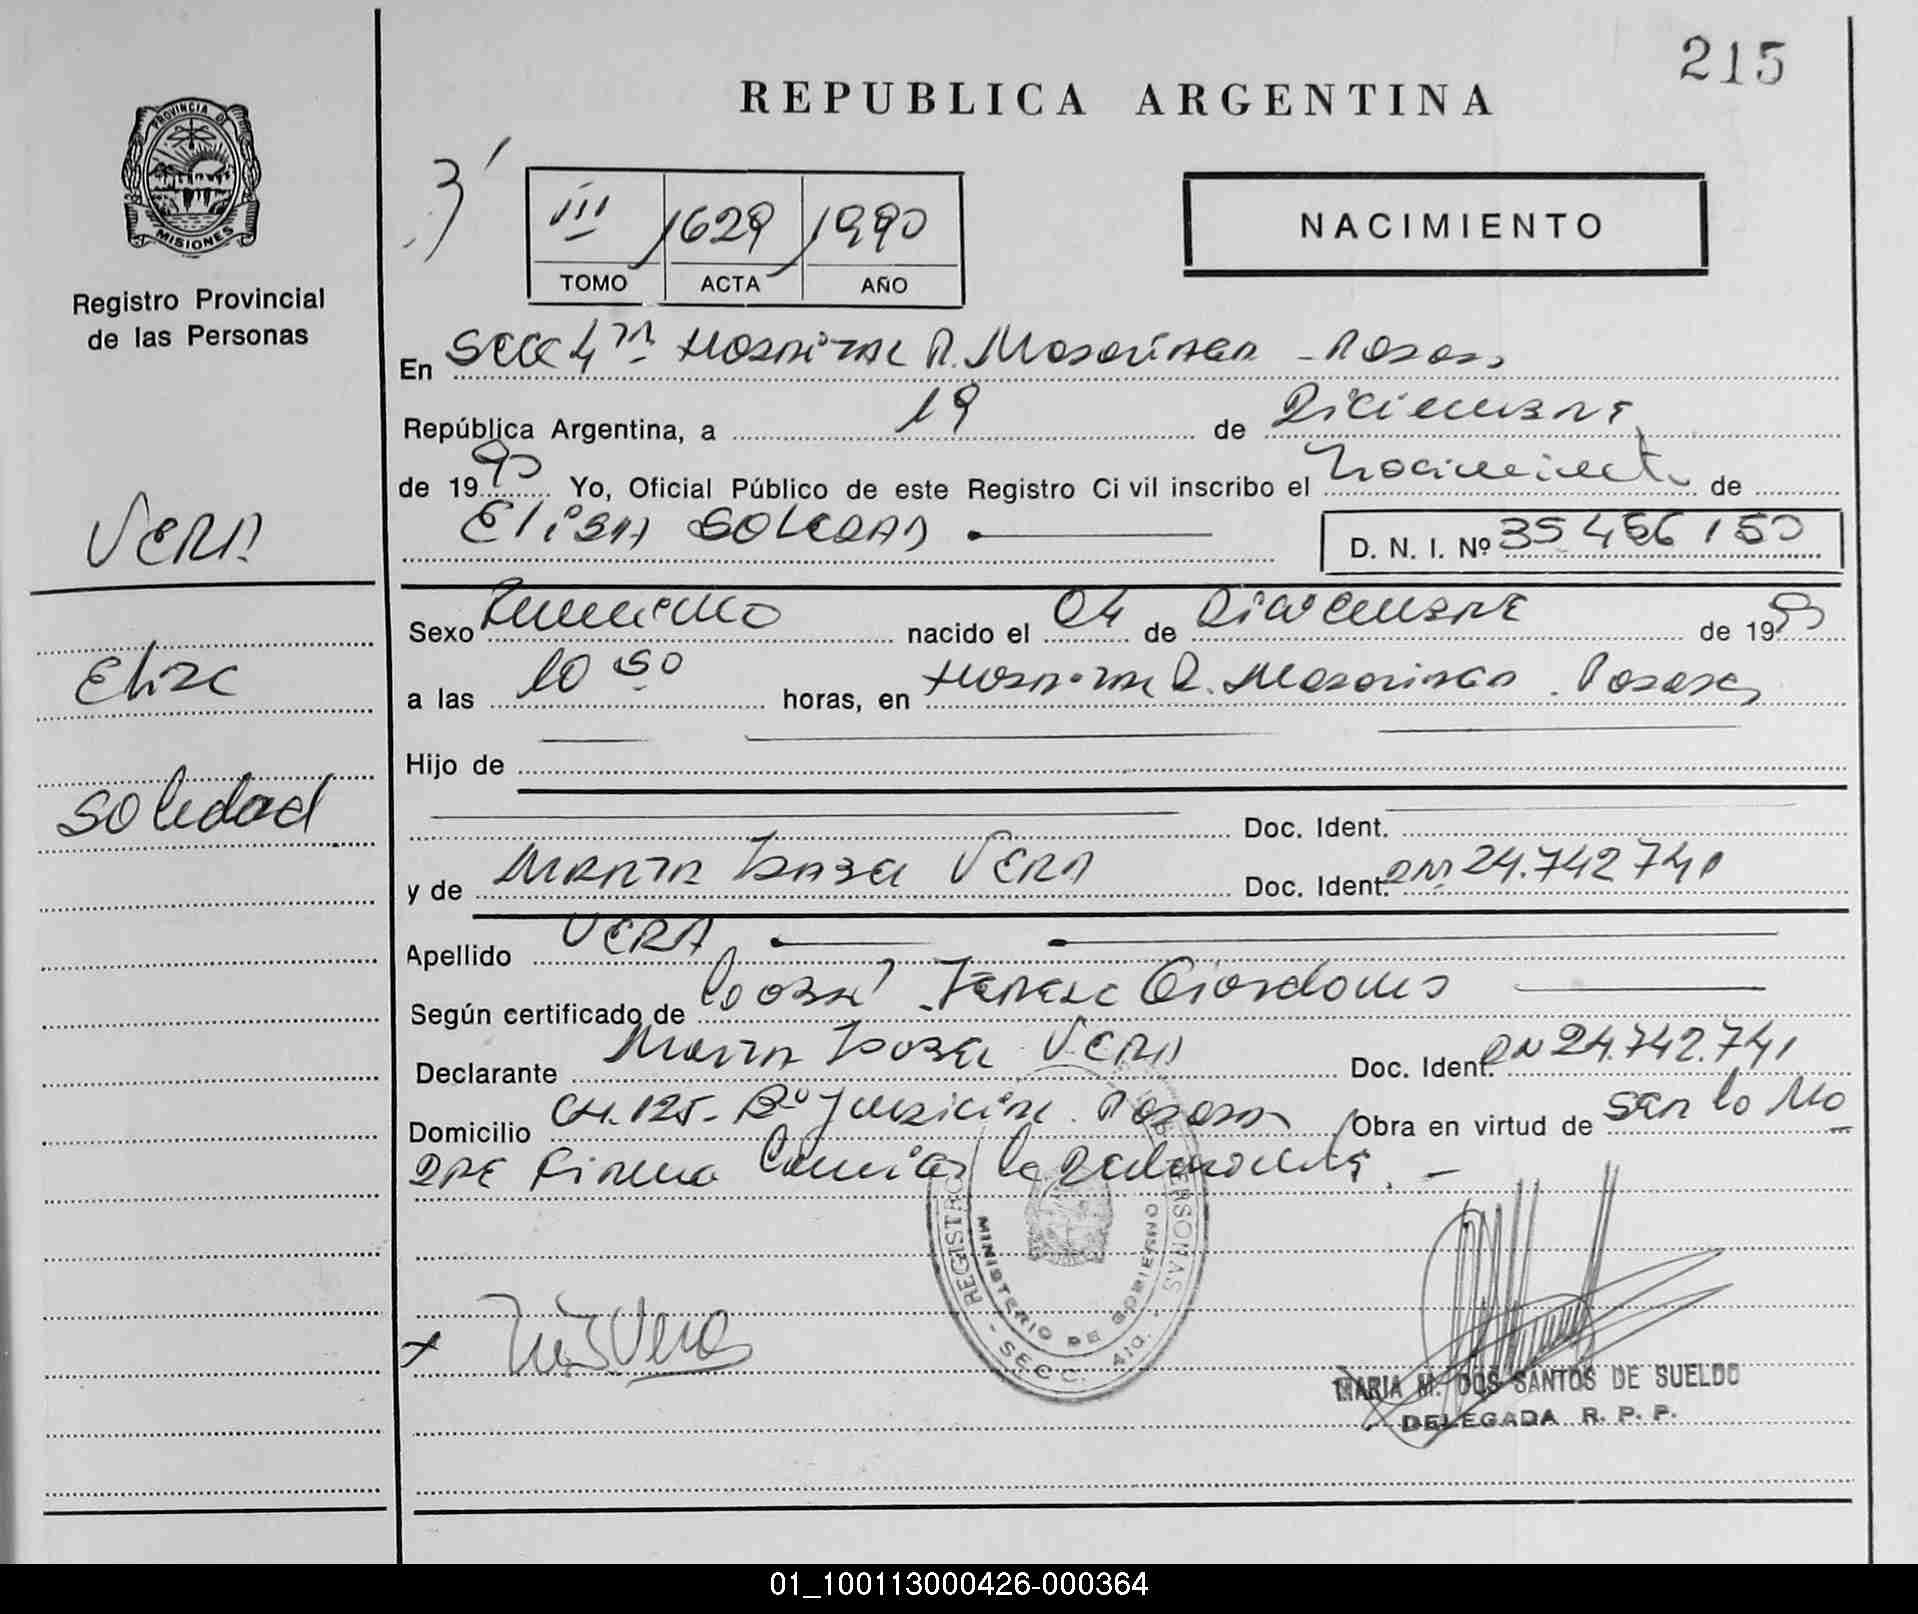 215
REPUBLICA ARGENTINA
PROVINCIA D
MISIONES
Registro Provincial
de las Personas
III 1629 1990
TOMO ACTA AÑO
NACIMIENTO
En Secc 4ta Hospital R. Madariaga - Posadas
República Argentina, a 19 de Diciembre
de 1990 Yo, Oficial Público de este Registro Civil inscribo el Nacimiento de
Elisa SOLEDAD D. N. I. Nº 35 456 150
VERA
Elisa
Soledad
Sexo Femenino nacido el 04 de Diciembre de 1990
a las 10 50 horas, en Hospital R. Madariaga. Posadas
Hijo de
Doc. Ident.
y de María Isabel VERA Doc. Ident. DNI 24.742 741
Apellido VERA
Según certificado de Teresa
Declarante María Isabel VERA Doc. Ident. DNI 24.742.741
Domicilio CH. 125 - Bº Posadas Obra en virtud de ser la Ma
dre Firma la declarante. -
REGISTRO PERSONAS
MINISTERIO DE GOBIERNO
- SECC. 4ta. -
Vera
MARIA M. DOS SANTOS DE SUELDO
DELEGADA R. P. P.
01_100113000426-000364